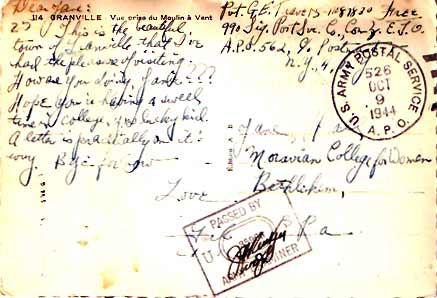 114 GRANVILLE - Vue prise du Moulin à Vent
Dear Jane:
This is the beautiful
town of Granville that I've
had the pleasure of visiting.
How are you doing
Hope you're having a swell
time in College, you lucky kid.
A letter is practically on its
way. Bye for now
Love
Pvt. G.E. Free
990 Sig. Port Svc. Co., Com Z. E.T.O.
A.P.O. 562, % Post
N.Y., N.Y.
U.S. ARMY POSTAL SERVICE
526
OCT
9
1944
A.P.O.
Jane
Moravian College for Women
Bethlehem,
Pa
PASSED BY
ARMY EXAMINER